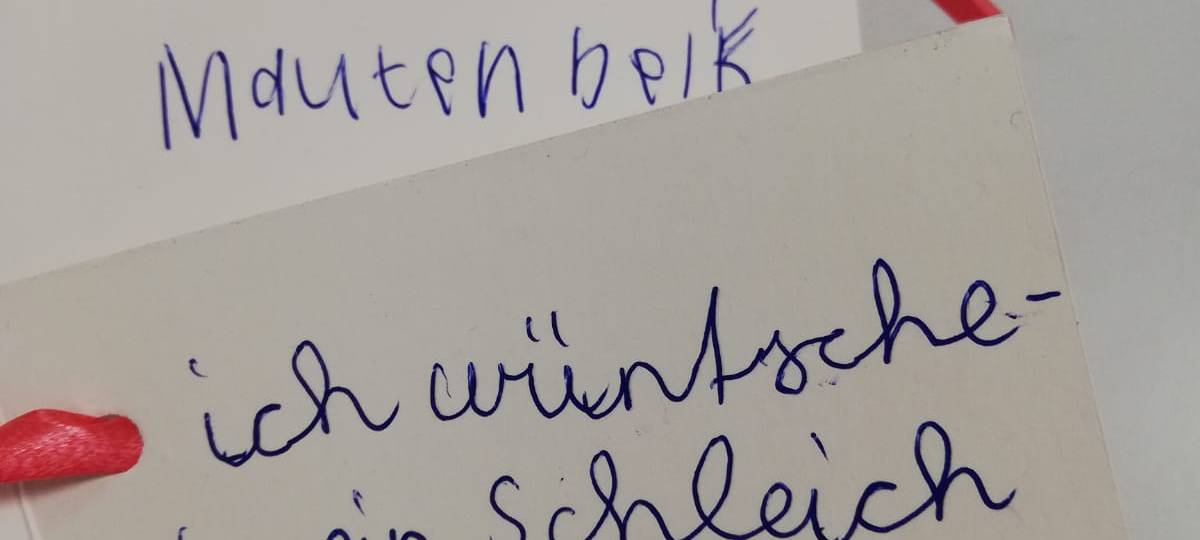 Mauten beik
ich wüntsche-
ein Schleich